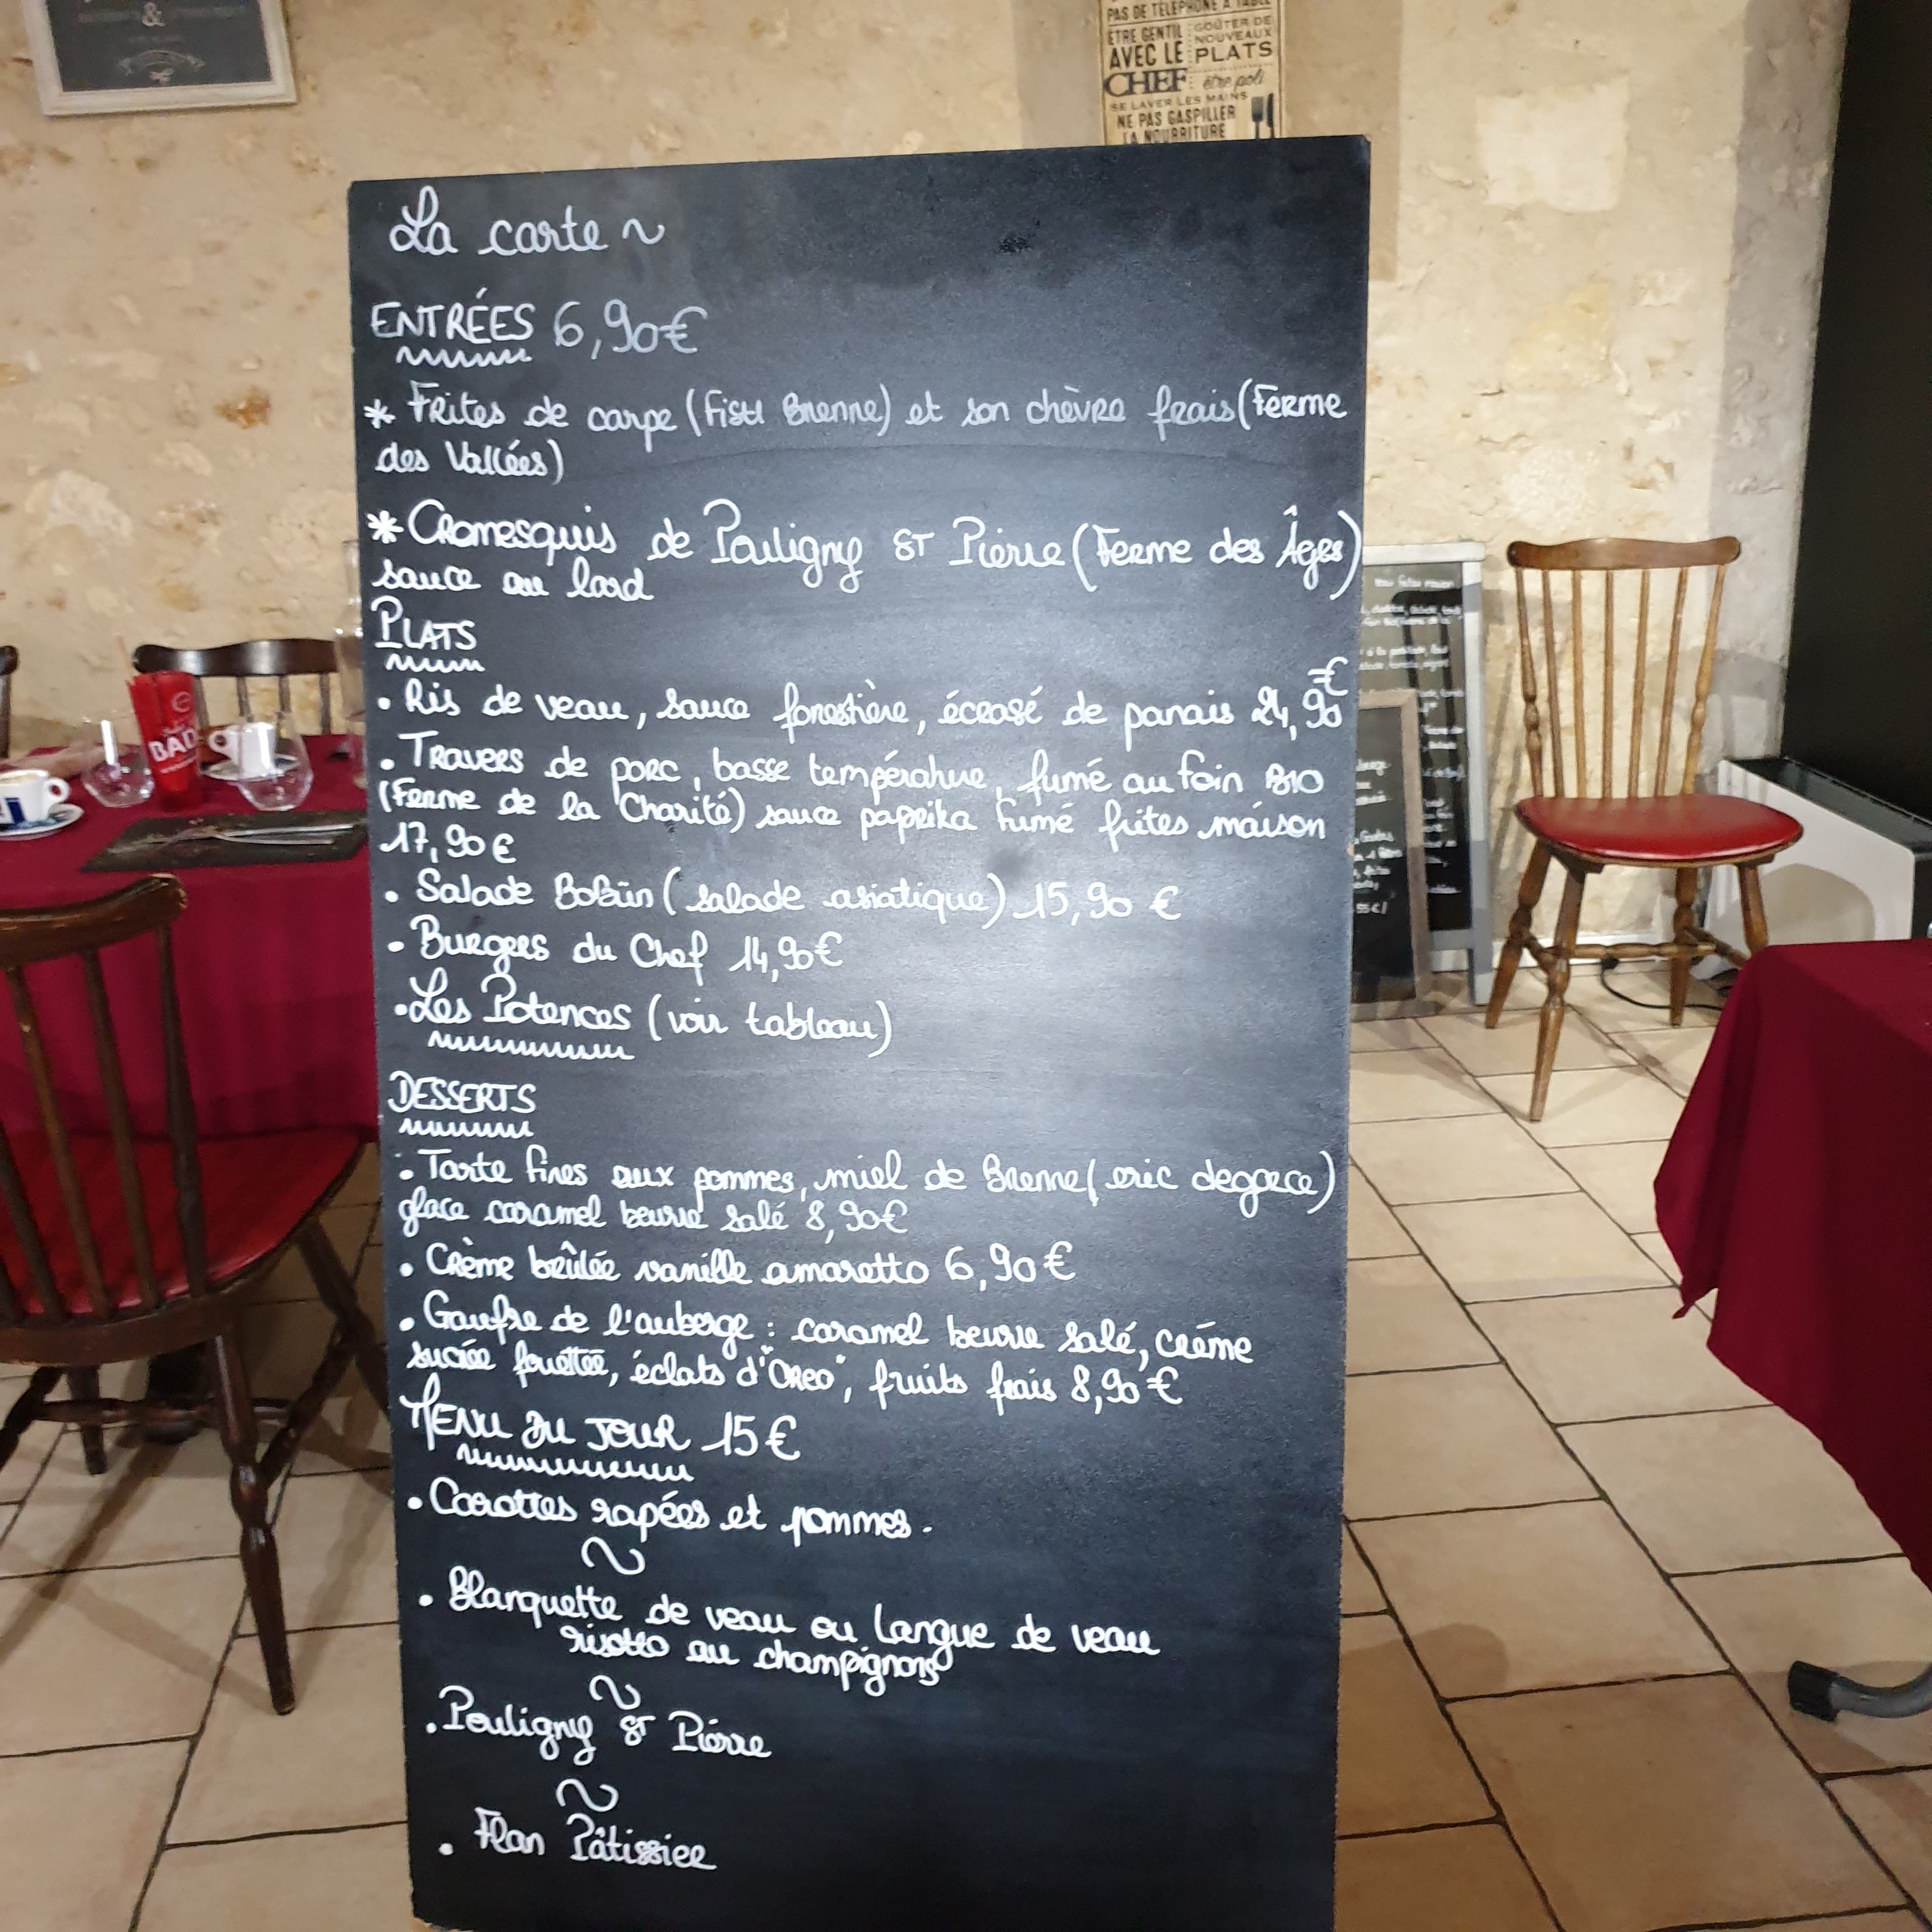 &
PAS DE TÉLÉPHONE À TABLE
ÊTRE GENTIL
AVEC LE
CHEF
GOÛTER DE
NOUVEAUX
PLATS
être poli
SE LAVER LES MAINS
NE PAS GASPILLER
LA NOURRITURE
La carte ~
ENTRÉES 6,90€
* Frites de carpe (Fish Brenne) et son chèvre frais (Ferme
des Vallées)
* Cromesquis de Pouligny ST Pierre (Ferme des Âges)
sauce au lard
PLATS
• Ris de veau, sauce forestière, écrasé de panais 24,90€
• Travers de porc, basse température, fumé au foin BIO
(Ferme de la Charité) sauce paprika fumé frites maison
17,90€
• Salade Bobün (salade asiatique) 15,90 €
• Burgers du Chef 14,90€
• Les Potences (voir tableau)
DESSERTS
• Tarte fines aux pommes, miel de Brenne (eric degace)
glace caramel beurre salé 8,90€
• Crème brûlée vanille amaretto 6,90€
• Gaufre de l'auberge : caramel beurre salé, crème
sucrée fouettée, éclats d'"Oreo", fruits frais 8,90€
MENU DU JOUR 15€
• Carottes rapées et pommes.
~
• Blanquette de veau ou Langue de veau
risotto au champignons
~
• Pouligny ST Pierre
~
• Flan Pâtissier
BAD